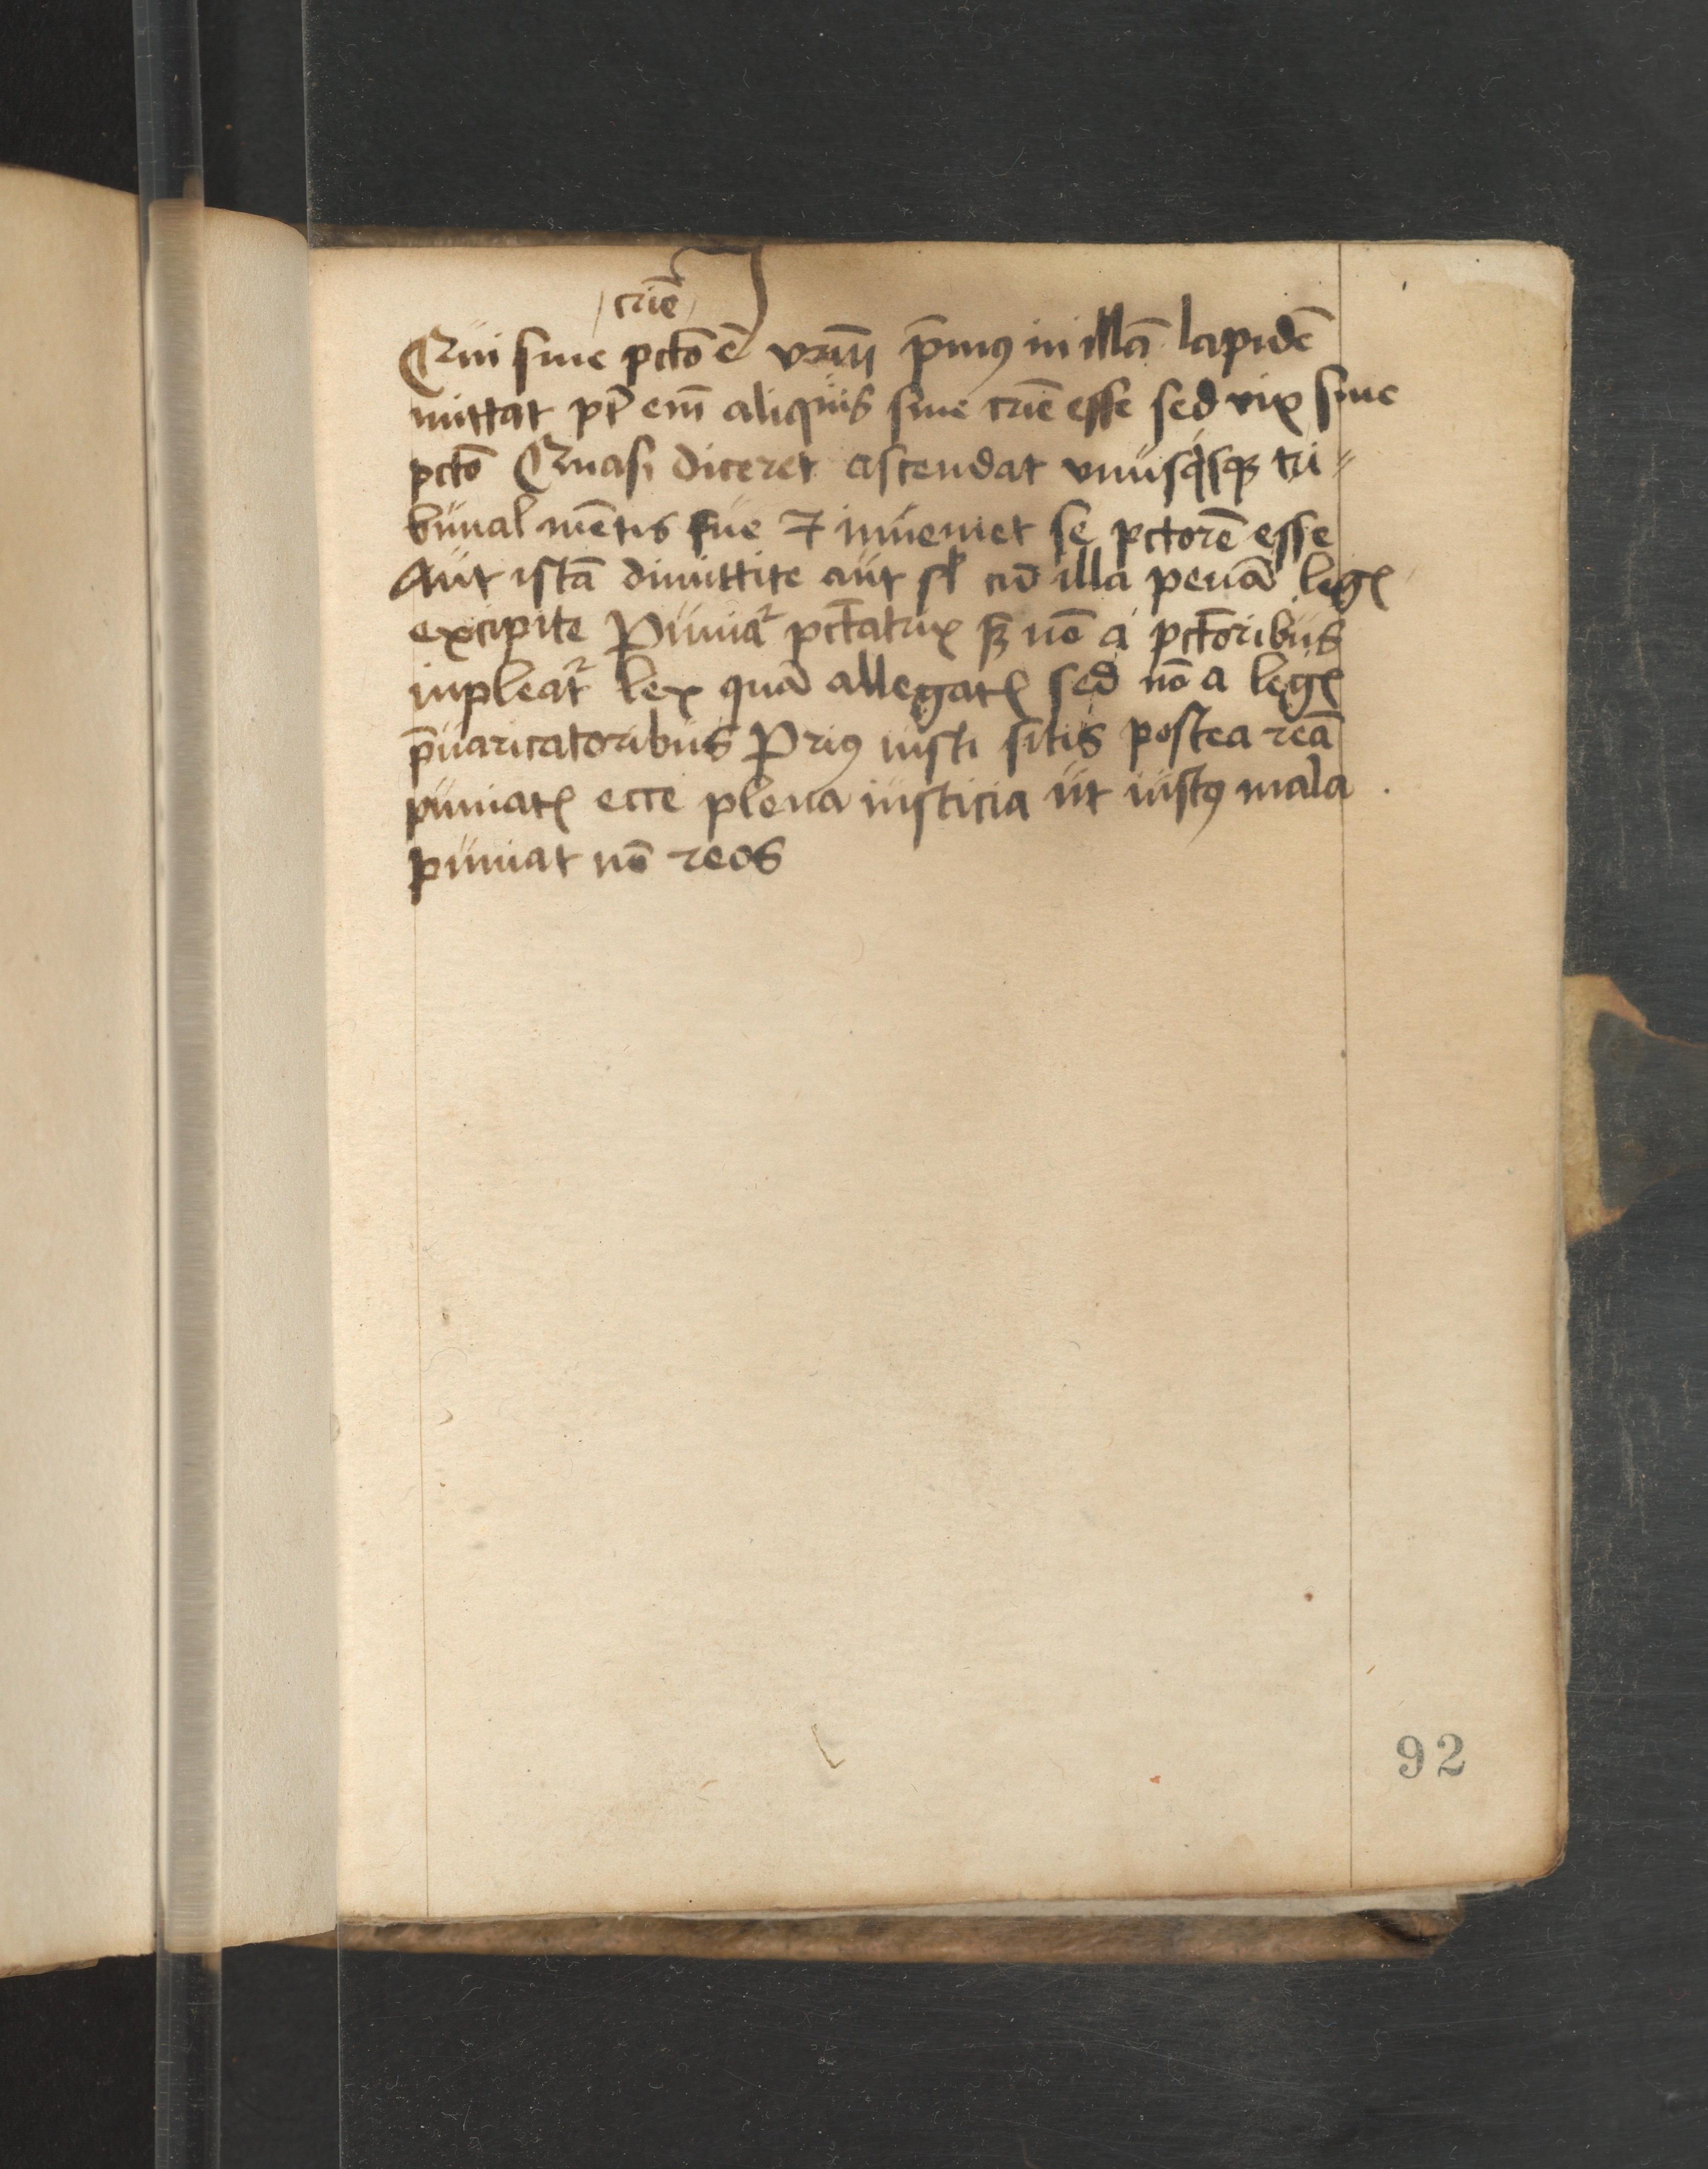 crīe
Qui sine pctō ē vrm̄ p̄mꝰ in illā lapidē
mittat pt̄ em̄ aliquis sine crīe esse sed vix sine
pctō Quasi diceret ascendat vnusqͥsqꝫ tri⸗
bunal mētis sue ⁊ inueniet se pctorē esse
Aut istā dimittite aut sl̄ cū illa penā legꝭ
excipite Puniat᷑ pctatrix sꝫ nō a pctoribus
inpleat᷑ lex quā allegatꝭ sed nō a legꝭ
p̄uaricatoribus Priꝰ iusti sitis postea reā
puniatꝭ ecce plena iusticia ut iustꝰ mala
puniat nō reos
92